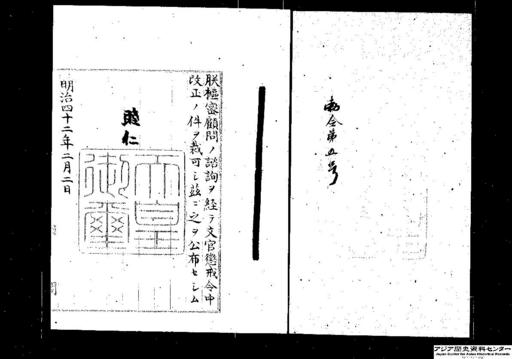 勅令第五号
朕枢密顧問ノ諮詢ヲ経テ文官懲戒令中
改正ノ件ヲ裁可シ茲ニ之ヲ公布セシム
睦仁
天皇
御璽
明治四十二年二月二日
アジア歴史資料センター
Japan Center for Asian Historical Records